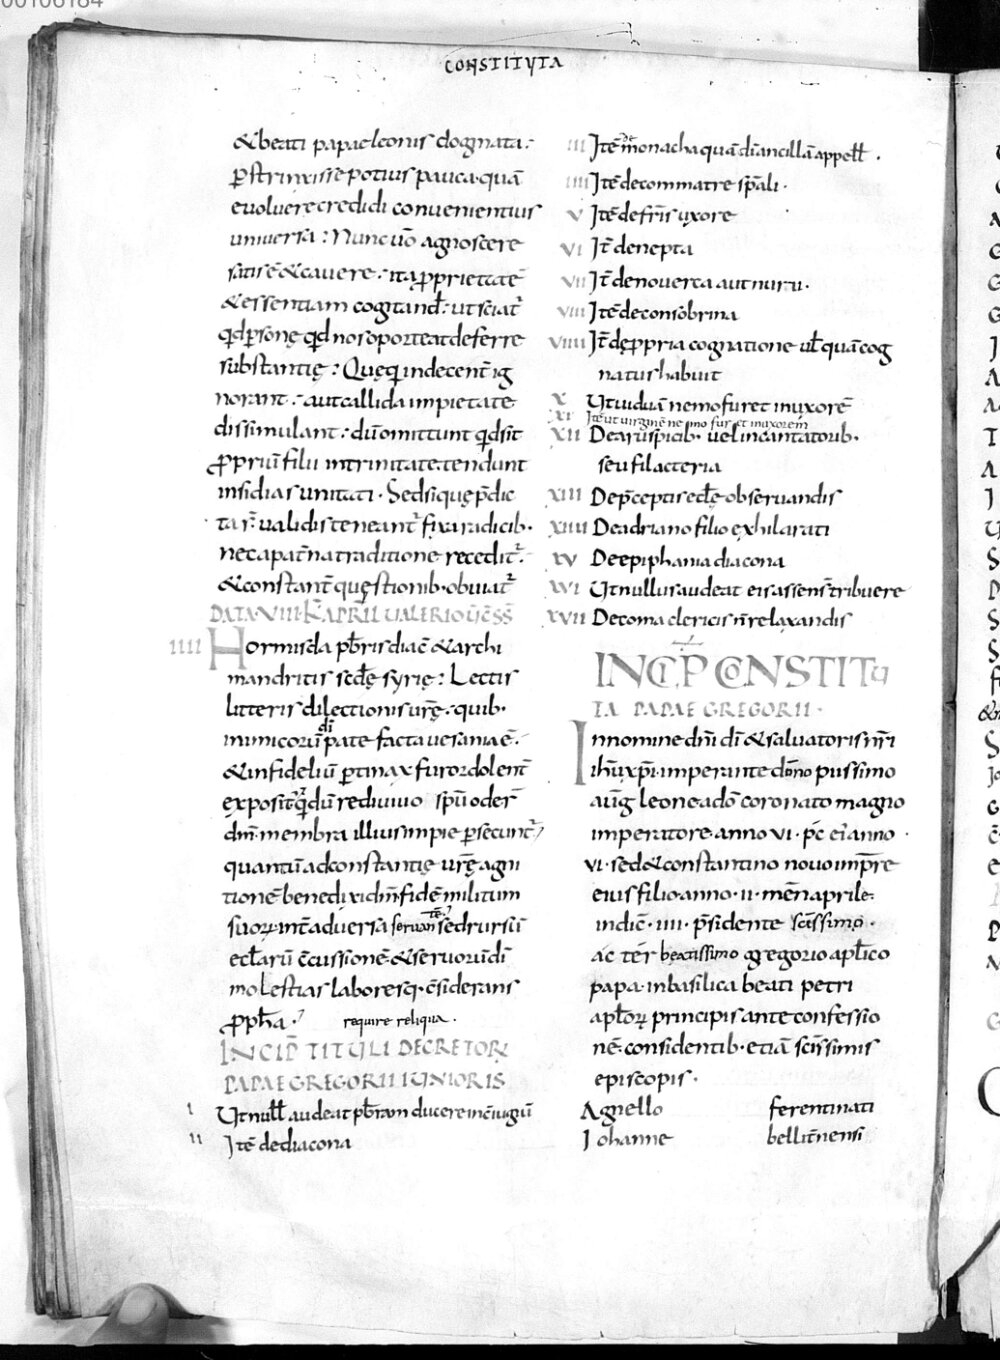 00106184
CONSTITUTA
& beati papae leonis dogmata:
p̄strinxisse potius pauca quā
evoluere credidi convenientius
universa: Nunc ūo agnoscere
satis ē & cavere: ita p̄prietatē
& essentiam cogitand: ut sciat̄
qđ p̄sonę qđ nos oporteat deferre
substantię: Quę qui indecent̄ ig
norant: aut callida impietate
dissimulant: dū omittunt qđ sit
p̄priū filii in trinitate tendunt
insidias unitati. Sed si quę p̄dic
ta s̄t validis teneant̄ fixa radicib·
nec a pat̄na traditione recedit̄:
& constant̄ quęstionib· obviat̄
DATA VIII KL APRIL VALERIO VC CSS
IIII Hormisda p̄bris diac̄ & archi
mandritis sedę syrię: Lectis
litteris dilectionis ūrę: quib·
inimicorū dī pate facta vesania ē:
& infideliū p̄tinax furor dolent̄
exposit qui dū redivivo sp̄u oder̄
dn̄i membra illius impie p̄secunt̄
quantū ad constantię ūrę agni
tionē benedixi dn̄m fidē militum
suoꝝ in t̄ adversa servantē sed rursū
eccl̄arū c̄cussionē & servorū dī
molestias laboresq· c̄siderans
p̄ph̄a· require reliqua.
INCIP̄ TITULI DECRETOꝝ
PAPAE GREGORII IUNIORIS
I Ut null̄ audeat p̄bram ducere in c̄iugiū
II Itē de diacona
III Itē de monacha quā dī ancillā appell̄.
IIII Itē de commatre sp̄ali·
V Itē de fr̄is uxore
VI It̄ de nepta
VII It̄ de noverca aut nuru·
VIII Itē de consobrina
VIIII It̄ de p̄pria cognatione ul̄ quā cog
natus habuit
X Ut viduā nemo furet in uxorē
XI Itē ut virginē nemo furet in uxorem
XII De aruspicib· vel incantatorib·
seu filacteria
XIII De p̄ceptis eccl̄ę observandis
XIIII De adriano filio exhilarati
XV De epiphania diacona
XVI Ut nullus audeat eis assens̄ tribuere
XVII De coma clericis n̄ relaxandis
INCIP̄ CONSTITU
TA PAPAE GREGORII·
In nomine dn̄i dī & salvatoris nr̄i
ih̄u xp̄i· imperante domno piissimo
aug̅ leone a dō coronato magno
imperatore anno vi· p̄c ei anno
vi· sed & constantino novo imp̄re
eius filio anno· ii· men̄ aprile·
indic̄· iiii· p̄sidente sc̄issimo·
ac ter̄ beatissimo gregorio apl̄ico
papa· in basilica beati petri
apl̄orꝝ principis ante confessio
nē· considentib· etiā sc̄issimis
episcopis·
Agnello ferentinati
Iohanne bellit̄nensi